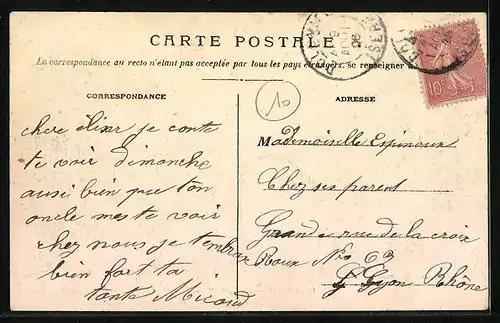 CARTE POSTALE
La correspondance au recto n'étant pas acceptée par tous les pays étrangers, se renseigner à
CORRESPONDANCE
ADRESSE
10
10
chere élixa je conte
te voir dimanche
ausi bien que ton
oncle mes te voir
chez nous je tembrae
bien fort ta
tante Micard
Mademoiselle Espinoux
Chez ses parent
Grande rue de la croix
Roux No 63
Lyon Rhône